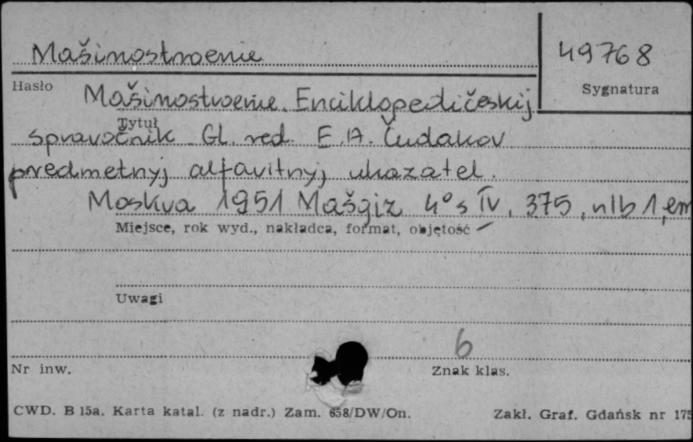 Mašinostroenie
49768
Hasło
Sygnatura
Mašinostroenie. Enciklopedičeskij
Tytuł
spravočnik Gl. red. E. A. Čudakov
predmetnyj alfavitnyj ukazatel.
Moskva 1951 Mašgiz 4° s IV, 375, nlb 1, em
Miejsce, rok wyd., nakładca, format, objętość
Uwagi
6
Nr inw.
Znak klas.
CWD. B 15a. Karta katal. (z nadr.) Zam. 658/DW/On.
Zakł. Graf. Gdańsk nr 175